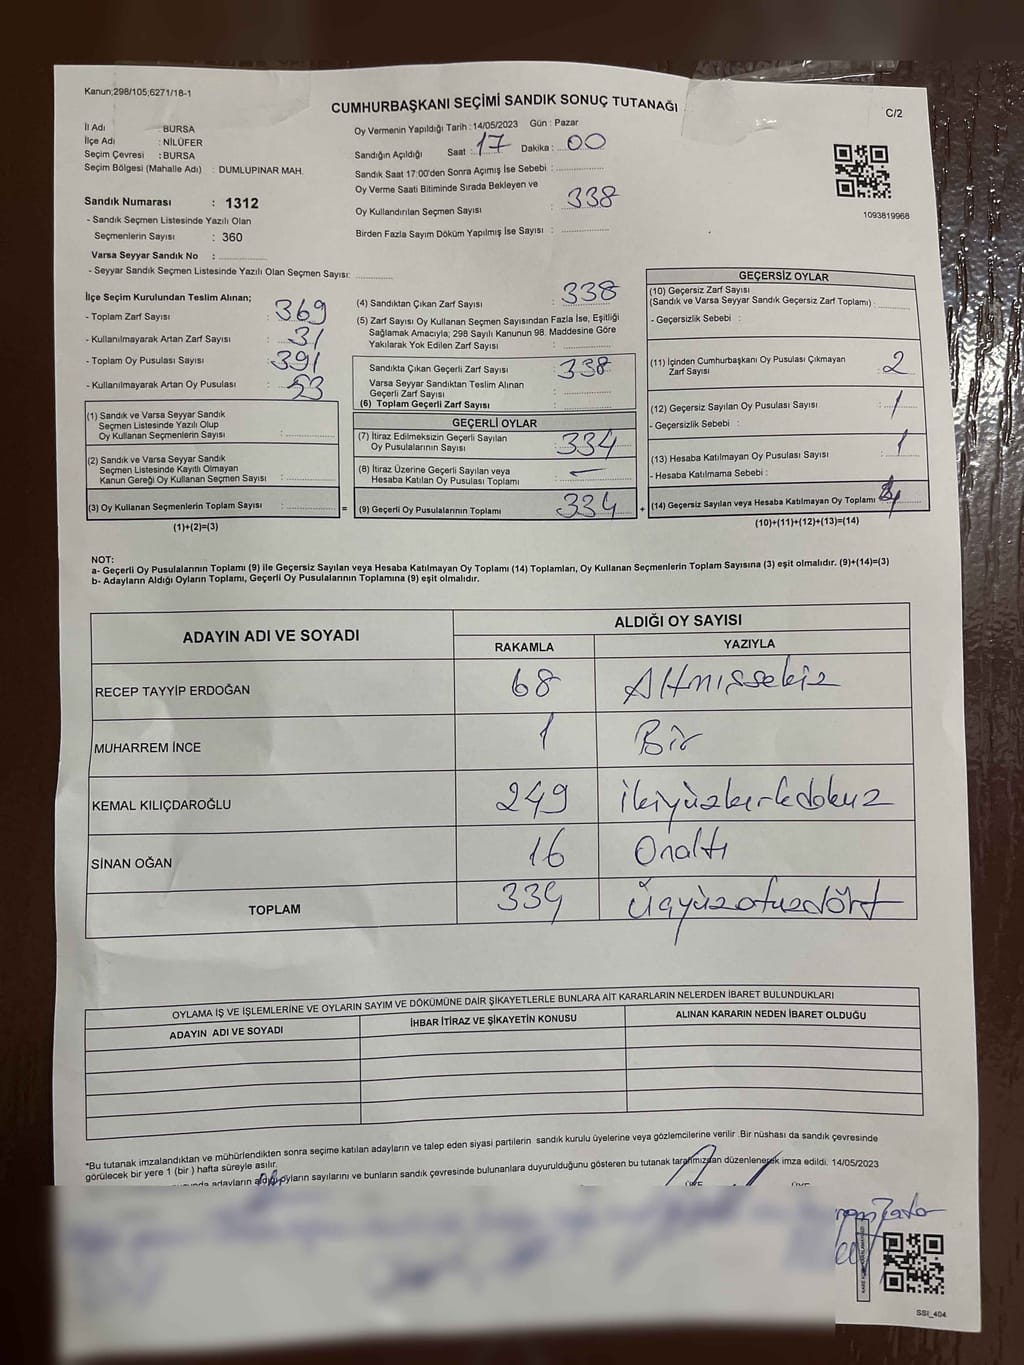 Kanun;298/105;6271/18-1
CUMHURBAŞKANI SEÇİMİ SANDIK SONUÇ TUTANAĞI
C/2
İl Adı : BURSA
İlçe Adı : NİLÜFER
Seçim Çevresi : BURSA
Seçim Bölgesi (Mahalle Adı) : DUMLUPINAR MAH.
Sandık Numarası : 1312
- Sandık Seçmen Listesinde Yazılı Olan
Seçmenlerin Sayısı : 360
Varsa Seyyar Sandık No :
- Seyyar Sandık Seçmen Listesinde Yazılı Olan Seçmen Sayısı:
Oy Vermenin Yapıldığı Tarih : 14/05/2023 Gün : Pazar
Sandığın Açıldığı Saat : 17 Dakika : 00
Sandık Saat 17:00'den Sonra Açımış İse Sebebi :
Oy Verme Saati Bitiminde Sırada Bekleyen ve
Oy Kullandırılan Seçmen Sayısı : 338
Birden Fazla Sayım Döküm Yapılmış İse Sayısı :
1093819968
İlçe Seçim Kurulundan Teslim Alınan;
- Toplam Zarf Sayısı : 369
- Kullanılmayarak Artan Zarf Sayısı : 31
- Toplam Oy Pusulası Sayısı : 391
- Kullanılmayarak Artan Oy Pusulası : 53
(1) Sandık ve Varsa Seyyar Sandık
Seçmen Listesinde Yazılı Olup
Oy Kullanan Seçmenlerin Sayısı :
(2) Sandık ve Varsa Seyyar Sandık
Seçmen Listesinde Kayıtlı Olmayan
Kanun Gereği Oy Kullanan Seçmen Sayısı :
(3) Oy Kullanan Seçmenlerin Toplam Sayısı : =
(1)+(2)=(3)
(4) Sandıktan Çıkan Zarf Sayısı : 338
(5) Zarf Sayısı Oy Kullanan Seçmen Sayısından Fazla İse, Eşitliği
Sağlamak Amacıyla; 298 Sayılı Kanunun 98. Maddesine Göre
Yakılarak Yok Edilen Zarf Sayısı :
Sandıkta Çıkan Geçerli Zarf Sayısı : 338
Varsa Seyyar Sandıktan Teslim Alınan
Geçerli Zarf Sayısı :
(6) Toplam Geçerli Zarf Sayısı :
GEÇERLİ OYLAR
(7) İtiraz Edilmeksizin Geçerli Sayılan
Oy Pusulalarının Sayısı : 334
(8) İtiraz Üzerine Geçerli Sayılan veya
Hesaba Katılan Oy Pusulası Toplamı : -
(9) Geçerli Oy Pusulalarının Toplamı : 334 +
GEÇERSİZ OYLAR
(10) Geçersiz Zarf Sayısı
(Sandık ve Varsa Seyyar Sandık Geçersiz Zarf Toplamı) :
- Geçersizlik Sebebi :
(11) İçinden Cumhurbaşkanı Oy Pusulası Çıkmayan
Zarf Sayısı : 2
(12) Geçersiz Sayılan Oy Pusulası Sayısı : 1
- Geçersizlik Sebebi :
(13) Hesaba Katılmayan Oy Pusulası Sayısı : 1
- Hesaba Katılmama Sebebi :
(14) Geçersiz Sayılan veya Hesaba Katılmayan Oy Toplamı : 4
(10)+(11)+(12)+(13)=(14)
NOT:
a- Geçerli Oy Pusulalarının Toplamı (9) ile Geçersiz Sayılan veya Hesaba Katılmayan Oy Toplamı (14) Toplamları, Oy Kullanan Seçmenlerin Toplam Sayısına (3) eşit olmalıdır. (9)+(14)=(3)
b- Adayların Aldığı Oyların Toplamı, Geçerli Oy Pusulalarının Toplamına (9) eşit olmalıdır.
ADAYIN ADI VE SOYADI
ALDIĞI OY SAYISI
RAKAMLA YAZIYLA
RECEP TAYYİP ERDOĞAN 68 Altmışsekiz
MUHARREM İNCE 1 Bir
KEMAL KILIÇDAROĞLU 249 İkiyüzkırkdokuz
SİNAN OĞAN 16 Onaltı
TOPLAM 334 Üçyüzotuzdört
OYLAMA İŞ VE İŞLEMLERİNE VE OYLARIN SAYIM VE DÖKÜMÜNE DAİR ŞİKAYETLERLE BUNLARA AİT KARARLARIN NELERDEN İBARET BULUNDUKLARI
ADAYIN ADI VE SOYADI İHBAR İTİRAZ VE ŞİKAYETİN KONUSU ALINAN KARARIN NEDEN İBARET OLDUĞU
*Bu tutanak imzalandıktan ve mühürlendikten sonra seçime katılan adayların ve talep eden siyasi partilerin sandık kurulu üyelerine veya gözlemcilerine verilir .Bir nüshası da sandık çevresinde
görülecek bir yere 1 (bir ) hafta süreyle asılır.
adayların aldığı oyların sayılarını ve bunların sandık çevresinde bulunanlara duyurulduğunu gösteren bu tutanak tarafımızdan düzenlenerek imza edildi. 14/05/2023
SSI_404